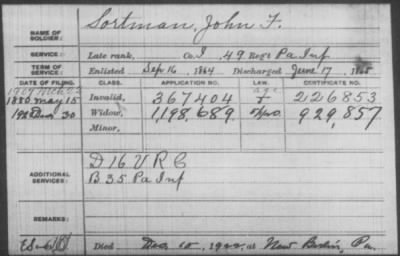 NAME OF SOLDIER: Sortman, John F.
SERVICE: Late rank, Co. I, 49 Reg't Pa Inf
TERM OF SERVICE: Enlisted Sep 16, 1864 Discharged June 17, 1865
DATE OF FILING. CLASS. APPLICATION NO. LAW. CERTIFICATE NO.
1907 Mch 22 age
1880 May 15 Invalid, 367404 226853
Dec 30 Widow, 1,198,689 929,857
Minor,
ADDITIONAL SERVICES: D 16 V R C
B 35 Pa Inf
REMARKS:
Died Dec 10, at New Berlin, Pa.